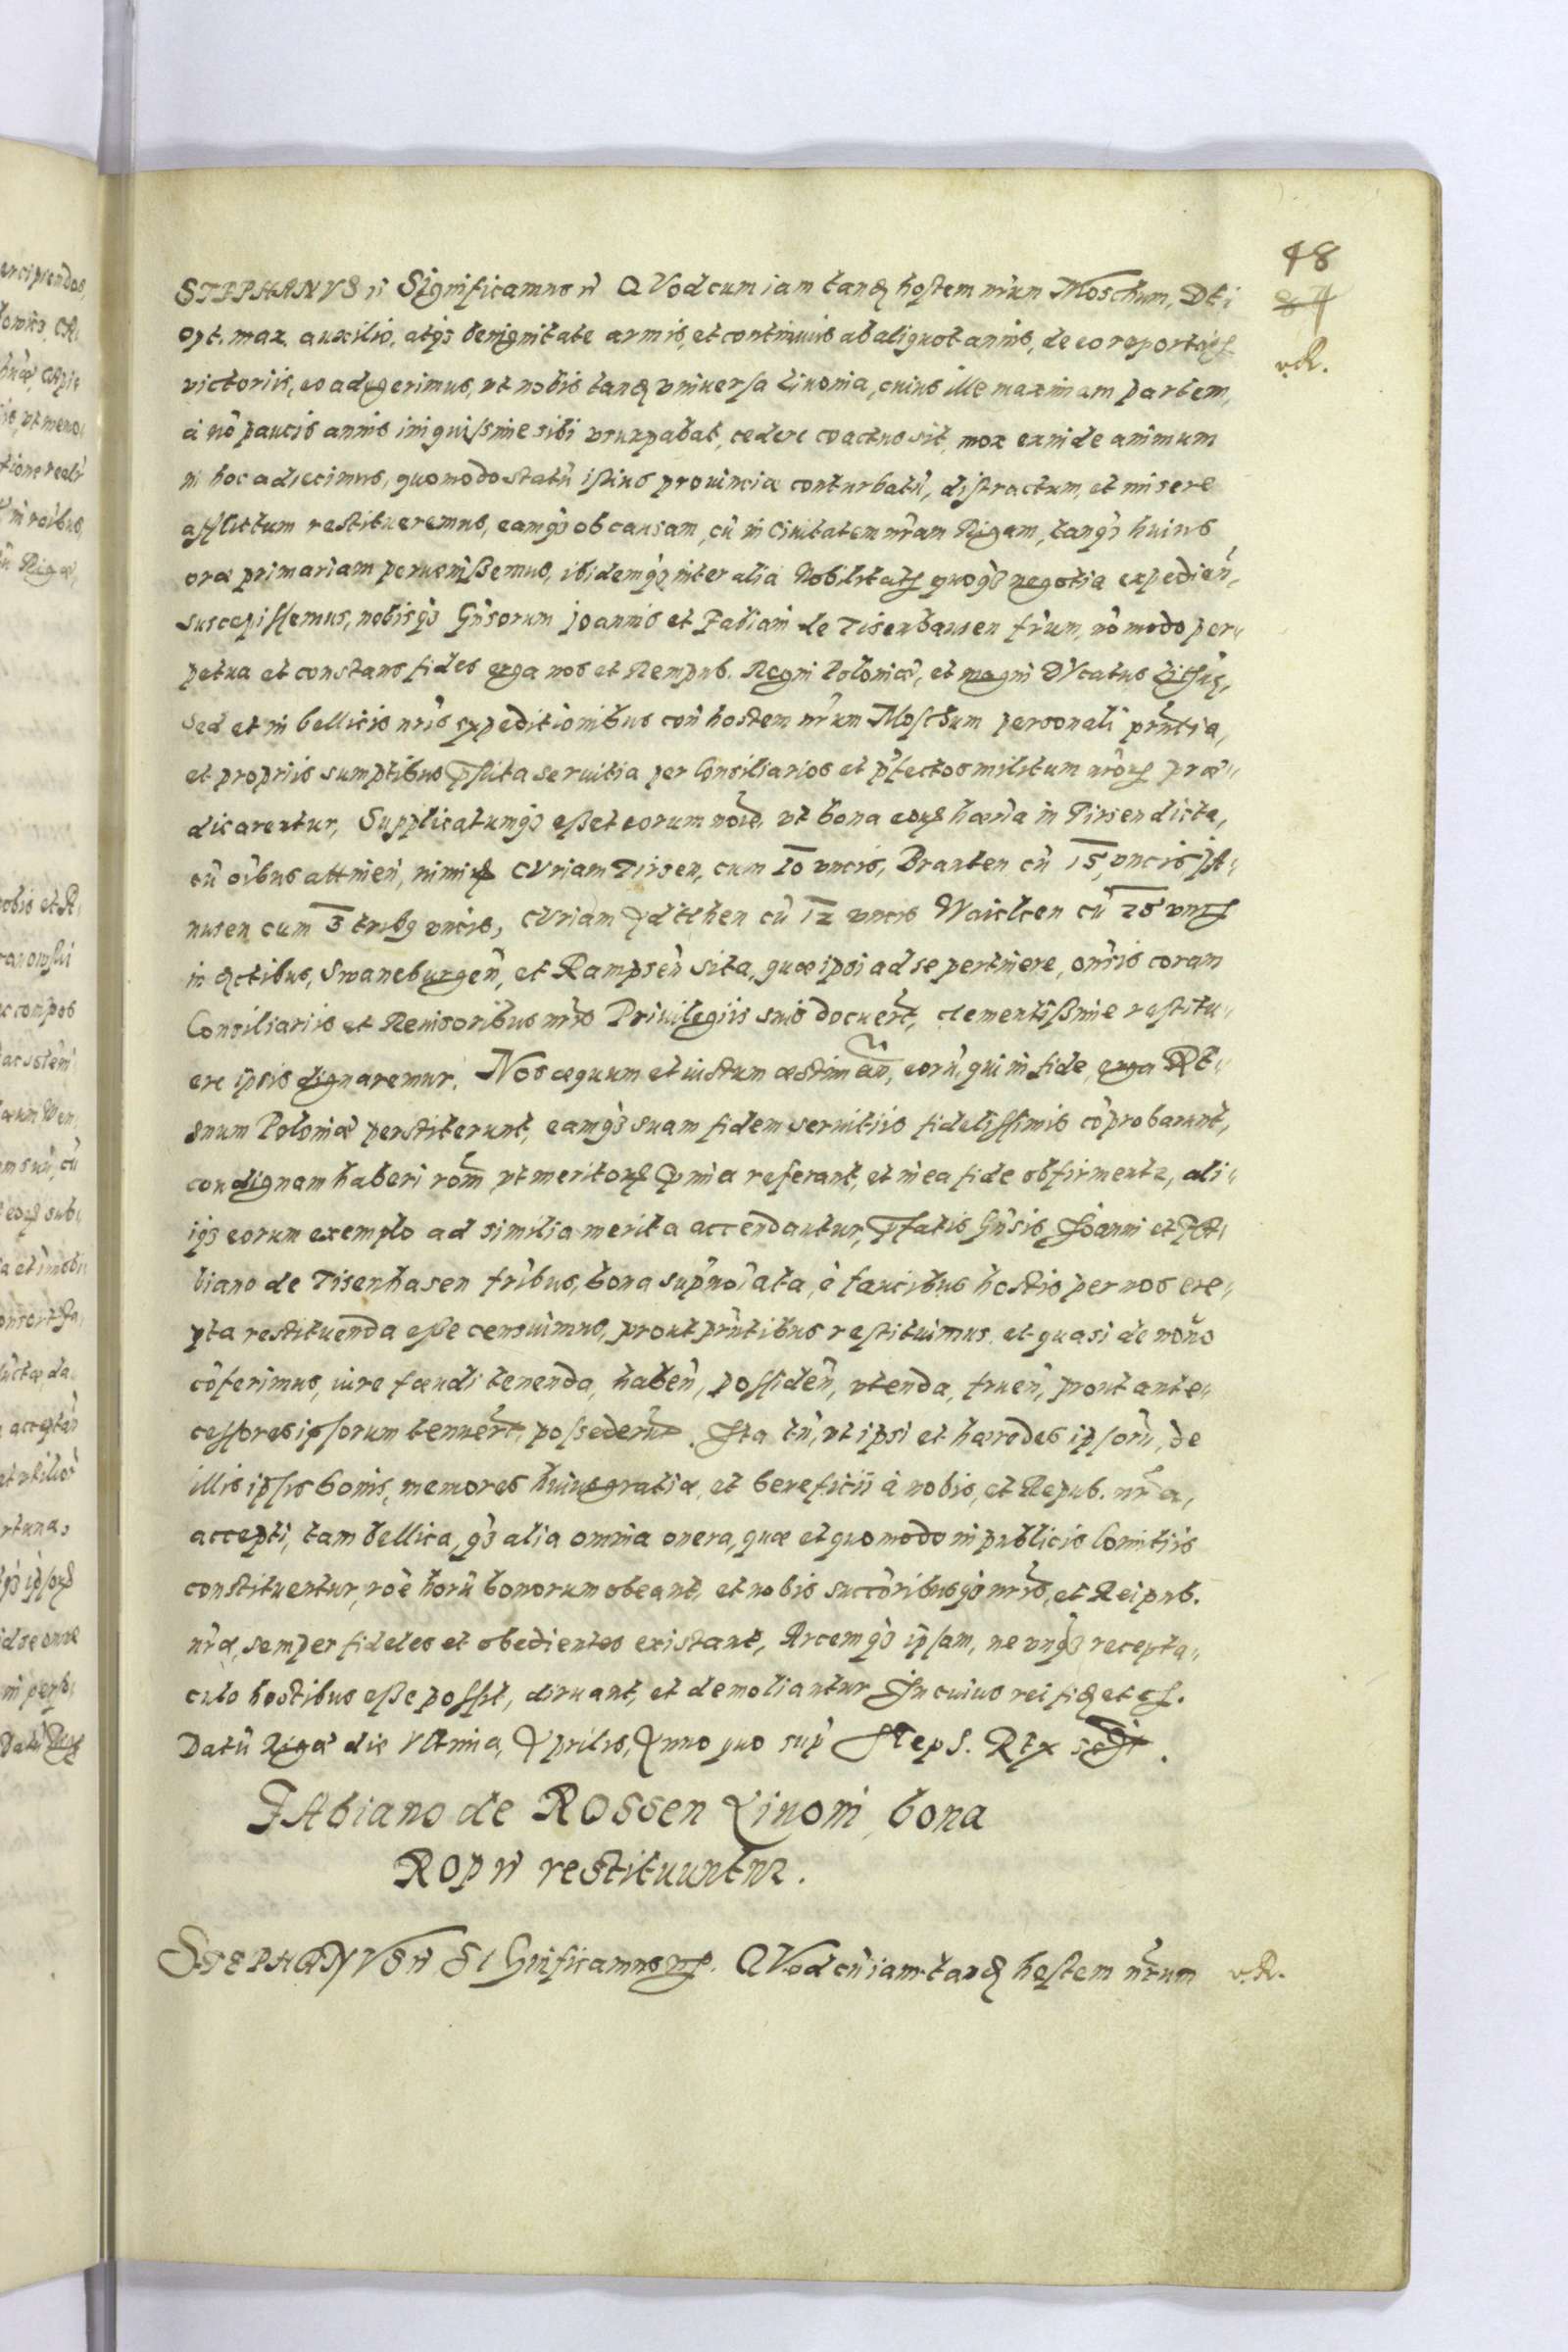 48
87
v.R.
STEPHANVS n̄ Significamus n̄ QVod cum iam tandē hostem nr̄um Moschum, DEi
opt. max. auxilio, atq₃ benignitate armis, et continuis ab aliquot annis, de eo reportatis
victoriis, eo adegerimus, vt nobis tandē vniuersa Liuonia, cuius ille maximam partem,
à nō paucis annis iniquissime sibi vsurpabat, cedere coactus sit, mox exinde animum
in hoc adiecimus, quomodo statū istius prouinciæ conturbatū, distractum, et misere
afflictum restitueremus, eamq₃ ob causam, cū in Ciuitatem nr̄am Rigam, tanq₃ huius
oræ primariam peruenissemus, ibidemq₃ inter alia Nobilitatis quoq₃ negotia expedien̄,
suscepissemus, nobisq₃ Gn̄sorum joannis et Fabiani de Tisenhausen fr̄um, nō modo per„
petua et constans fides erga nos et Rempub. Regni Poloniæ, et magni DVcatus Lithuę,
sed et in bellicis nr̄is expeditionibus con̄ hostem nr̄um Moschum personali prn̄tia,
et propriis sumptibus pr̄stita seruitia per Consiliarios et pr̄fectos militum nr̄orum præ„
dicarentur, Supplicatumq₃ esset eorum noīe, vt bona eorum hær̄ia in Pirsen dicta,
cū oībus attinen̄, nimirum CVriam Tirsen, cum 10 vncis, Branten cū 15, vncis JA„
nusen cum 3 tribus vncis, CVriam Aditzhen cū 12 vncis Waicken cū 25 vncis
in Districtibus, Swaneburgen̄, et Rampsen̄ sita, quæ ipsi ad se pertinere, on̄sis coram
Consiliariis et Reuisoribus nr̄is Priuilegiis suis docuert̄, clementissime restitu„
ere ipsis dignaremur. Nos æquum et iustum æstiman̄, eorū, qui in fide erga RE„
gnum Poloniæ perstiterunt, eamq₃ suam fidem seruitiis fidelissimis cōprobarunt,
condignam haberi rōm, vt meritorum præmia referant, et in ea fide obfirmentr, ali„
iq₃ eorum exemplo ad similia merita accendantur, Pr̄fatis Gn̄sis Joanni et FA„
biano de Tisenhasen fr̄ibus, bona supr̄noīata, è faucibus hostis per nos ere„
pta restituenda esse censuimus, prout prn̄tibus restituimus et quasi de nouo
cōferimus, iure fæudi tenenda, haben̄, possiden̄, vtenda, fruen̄, prout ante„
cessores ipsorum tenuert̄, possedert̄. Ita tn̄, vt ipsi et hæredes ipsorū, de
illis ipsis bonis, memores huius gratiæ, et beneficii à nobis, et Repub. nr̄a,
accepti, tam bellica, q₃ alia omnia onera, quæ et quomodo in publicis Comitiis
constituentur, rōe horū bonorum obeant, et nobis succōribusq₃ nr̄is, et Reipub.
nr̄æ, semper fideles et obedientes existant, Arcemq₃ ipsam, ne vnq₃ recepta„
culo hostibus esse possit, diruant, et demoliantur In cuius rei fidē etc.
Datū Rigæ die Vltima, Aprilis, Anno quo supr̄ Steps. REx sst.
FAbiano de ROssen Liuoni bona
ROpn̄ restituuntur.
STEPHANVS n̄ SIGnificamus n̄. QVod cū iam tandē hostem nr̄um
v.R.